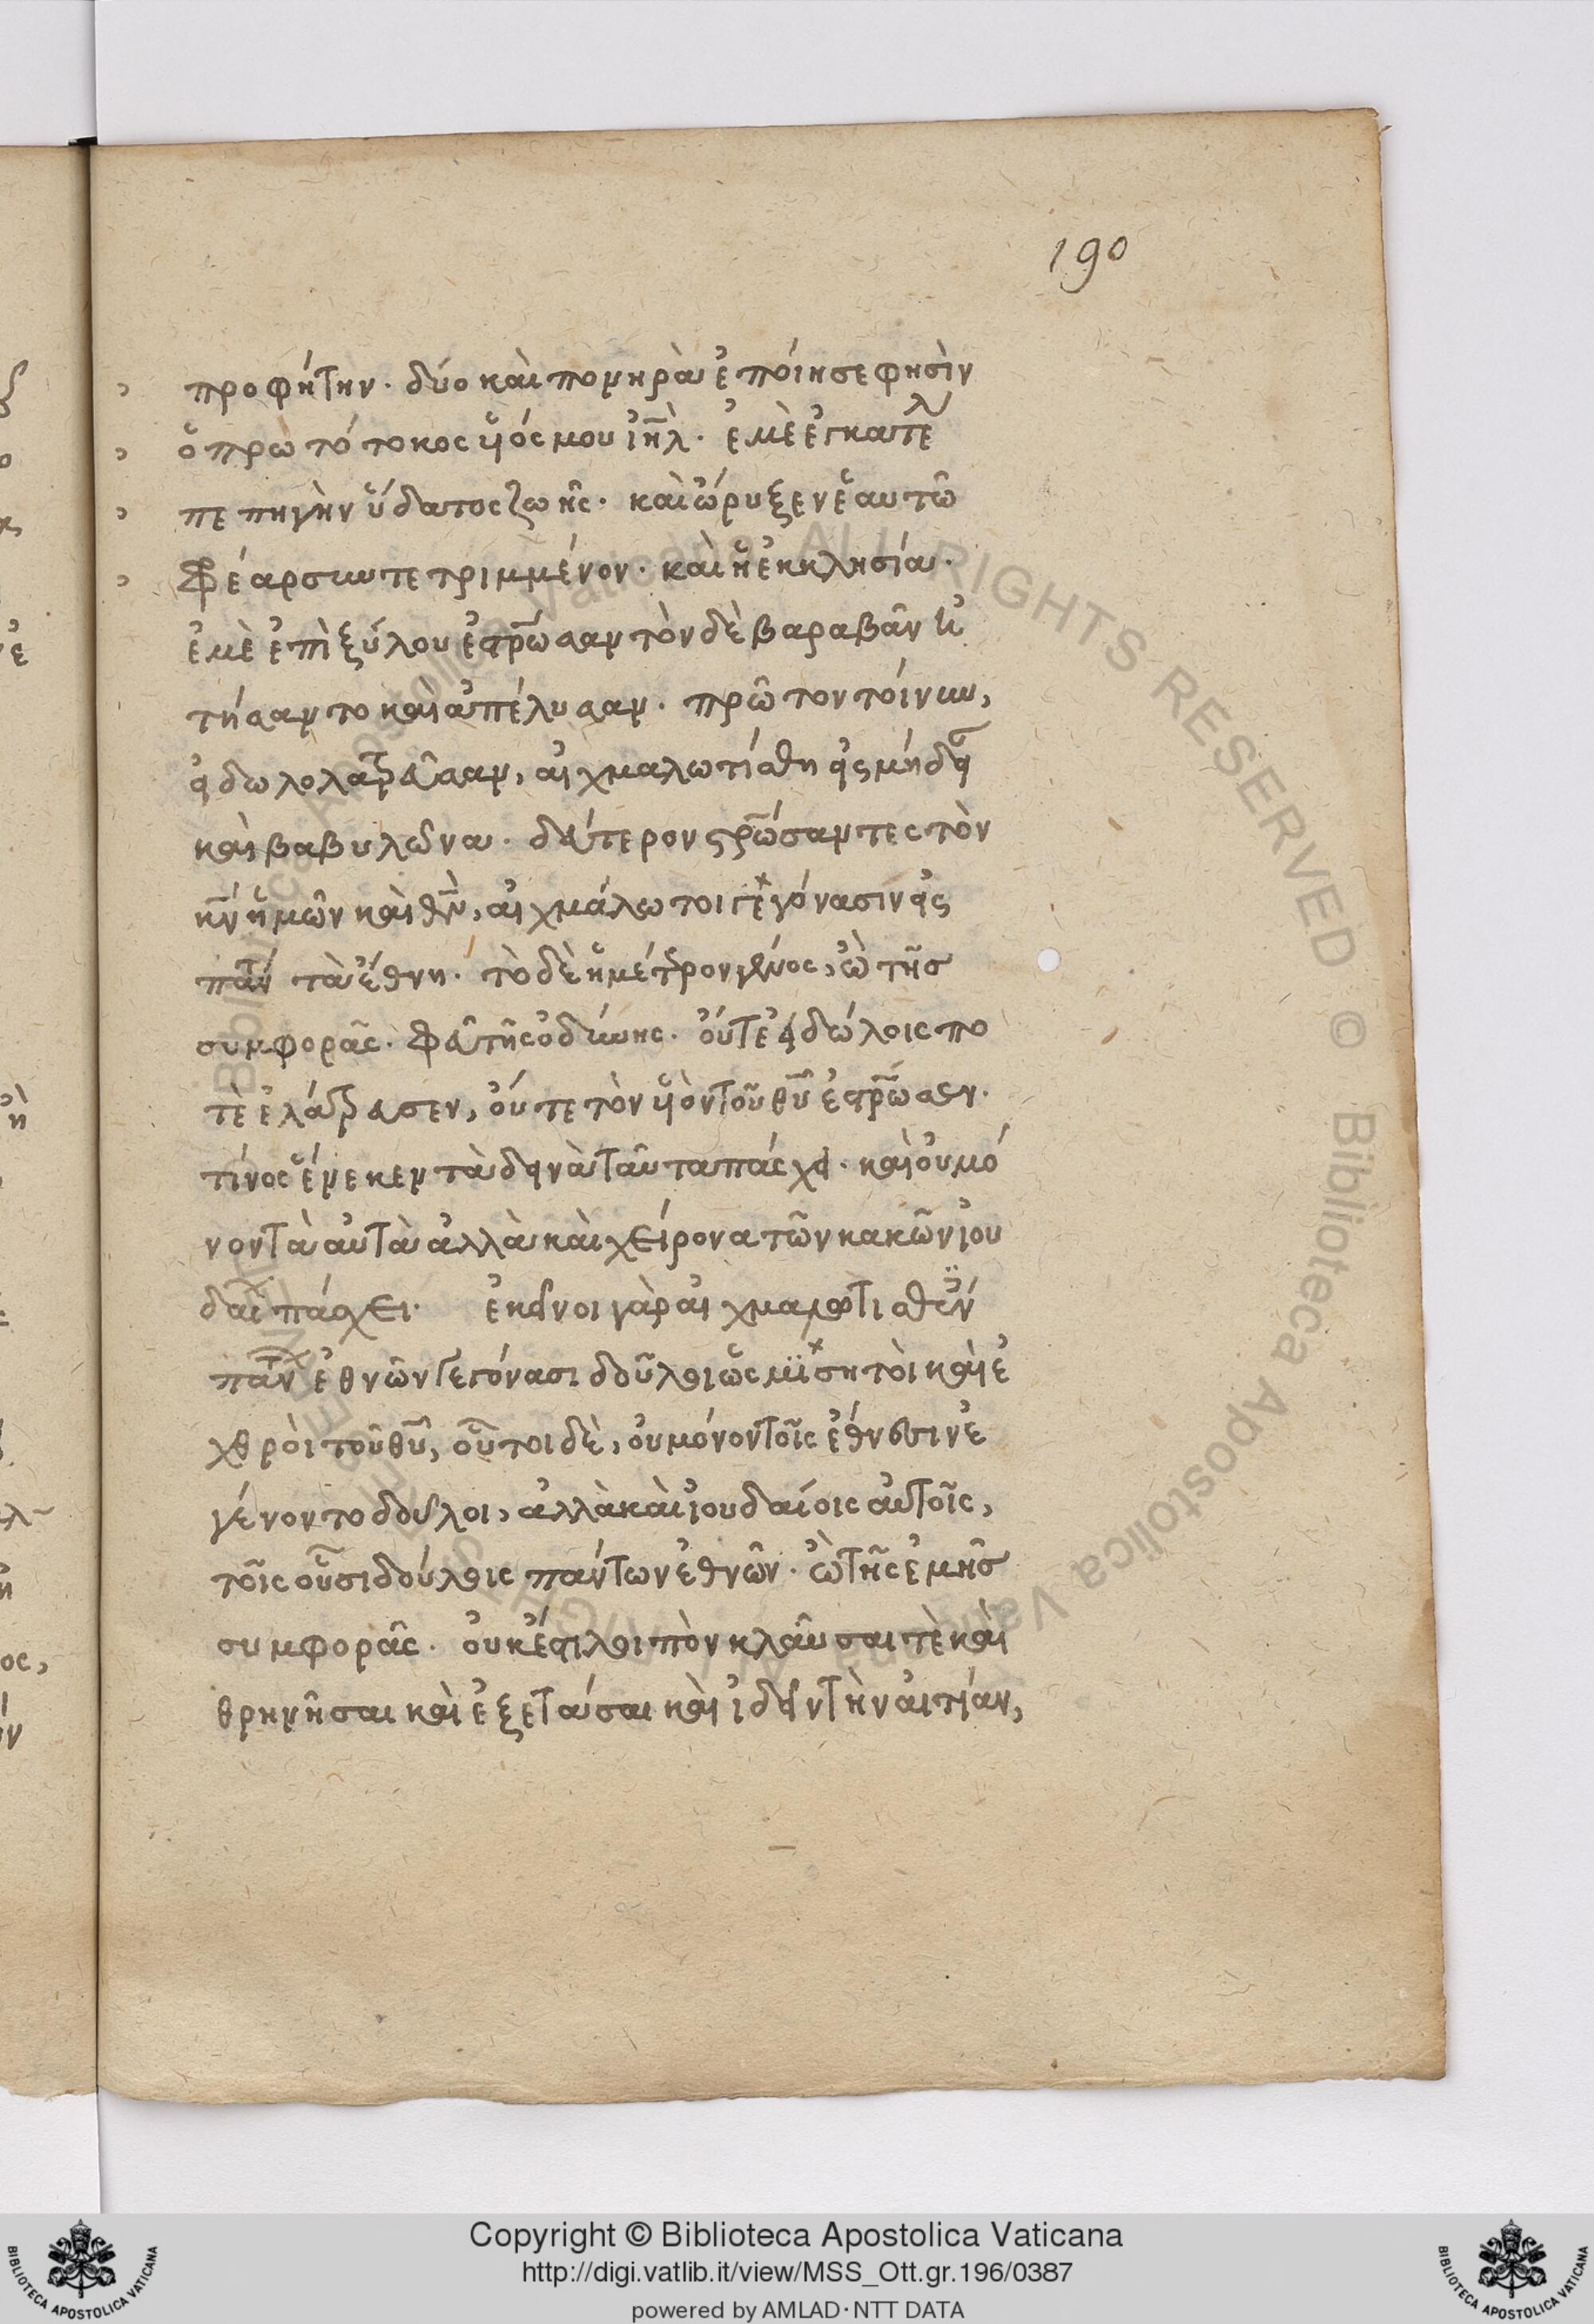 190
προφήτην. δύο καὶ πονηρὰ ἐποίησε φησὶν
ὁ πρωτότοκος υἱός μου ἰηλ. ἐμὲ ἐγκατέλι
πε πηγὴν ὕδατος ζωῆς. καὶ ὤρυξεν ἑαυτῶ
φρέαρ συντετριμμένον. καὶ ἡ ἐκκλησία.
ἐμὲ ἐπὶ ξύλου ἐστρωσαν τὸν δὲ βαραβᾶν ἠ
τήσαντο καὶ ἀπέλυσαν. πρῶτον τοίνυν,
εἰδωλολατρεύσαν, αἰχμαλωτίσθη εἰς μήδειαν
καὶ βαβυλῶνα. δεύτερον στρώσαντες τὸν
κν ἡμῶν καὶ θν, αἰχμάλωτοι γεγόνασιν εἰς
πάντα τὰ ἔθνη. τὸ δὲ ἡμέτερον γένος, ὢ τῆς
συμφορᾶς. φεῦ τῆς ὀδύνης. οὔτε εἰδώλοις πο
τὲ ἐλάτρευσεν, οὔτε τὸν υἱὸν τοῦ θυ ἐστρωσεν.
τίνος ἕνεκεν τὰ δεινὰ ταῦτα πάσχει. καὶ οὐ μό
νον τὰ αὐτὰ ἀλλὰ καὶ χείρονα τῶν κακῶν ἰου
δαι πάσχει. ἐκεῖνοι γὰρ αἰχμαλωτισθέν
παν ἐθνῶν γεγόνασι δοῦλοι ὡς μισητοὶ καὶ ἐ
χθροὶ τοῦ θυ, οὗτοι δὲ, οὐ μόνον τοῖς ἔθνεσιν ἐ
γένοντο δοῦλοι, ἀλλὰ καὶ ἰουδαίοις αὐτοῖς,
τοῖς οὖσι δούλοις πάντων ἐθνῶν. ὢ τῆς ἐμῆς
συμφορᾶς. οὐκ ἔστι λοιπὸν κλαῦσαι τὲ καὶ
θρηνῆσαι καὶ ἐξετάσαι καὶ ἰδεῖν τὴν αἰτίαν,
Copyright © Biblioteca Apostolica Vaticana
http://digi.vatlib.it/view/MSS_Ott.gr.196/0387
powered by AMLAD·NTT DATA